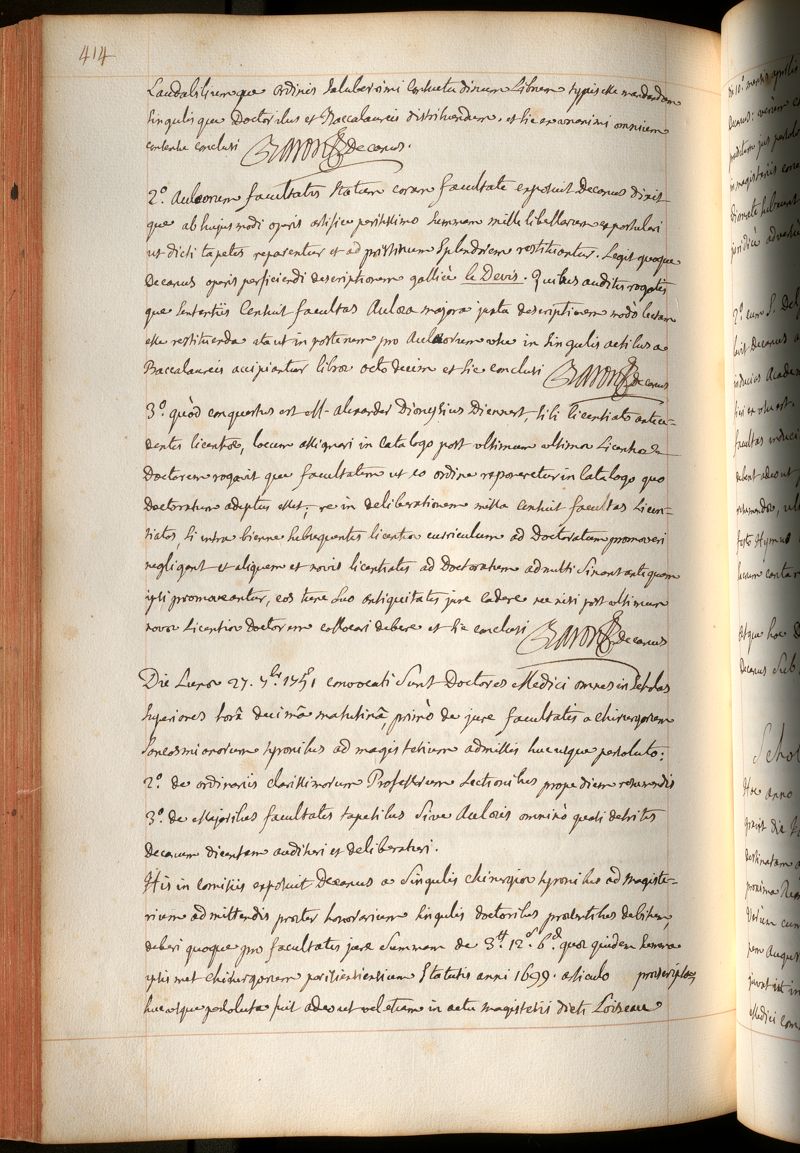 414
Laudabiliumque ordinis saluberrimi consuetudinum Librum typis esse mandandum
singulisque Doctoribus et Baccalaureis distribuendum, et sic ex unanimi omnium
consensu conclusi Baron decanus.
2.° Aulæorum facultatis statum coram facultate exposuit Decanus dixit
que ab hujusmodi operis artifice peritissimo summam mille libellarum expostulari
ut dicti tapetes reparentur et ad pristinum splendorem restituantur. Legit quoque
Decanus operis perficiendi descriptionem gallicè le Devis. Quibus auditis rogatis
que sententiis Censuit facultas Aulæa majora juxta descriptionem modò lectam
esse restituenda ita ut in posterum pro Aulæorum usu in singulis actibus a
Baccalaureis accipiantur libræ octodecim et sic conclusi Baron decanus
3.° quòd conquestus est M. alexander Dionysius Diennert, sibi licentiato antece-
dentis licentiæ, locum assignari in Catalogo post ultimum ultimæ Licentiæ
Doctorem rogavit que facultatem ut eo ordine reponeretur in Catalogo quo
Doctoratum adeptus esset, re in deliberationem missa Censuit facultas Licen-
tiatos, si intra bienne subsequentis licentiæ curriculum ad Doctoratum promoveri
negligent et aliquem ex novis licentiatis ad Doctoratum admitti sinant antequam
ipsi promoveantur, eos tunc suo antiquitatis jure cadere nec nisi post ultimum
novæ Licentiæ doctorem collocari debere et sic conclusi Baron decanus
Die Lunæ 27. 7bris 1751 convocati sunt Doctores Medici omnes in Scholas
superiores horâ decimâ matutinâ, primò de jure facultatis a chirurgorum
Sancosmianorum tyronibus ad magisterium admissis hucusque persoluto;
2.° de ordinariis clarissimorum Professorum Lectionibus propediem resumendis
3.° de Majoribus facultatis tapetibus sive Aulæis omninò quasi detritis
Decanum dicentem audituri et deliberaturi.
His in comitiis exposuit Decanus a singulis chirurgiæ tyronibus ad magiste-
rium admittendis præter honorarium singulis doctoribus præsentibus debitum,
deberi quoque pro facultatis jure summam de 3tt. 12s. 6d. quæ quidem
ipsismet chirurgorum parisiensium Statutis anni 1699. articulo præscripta
hucusque persoluta fuit adeo ut vel etiam in actu magisterii dicti Loiseau